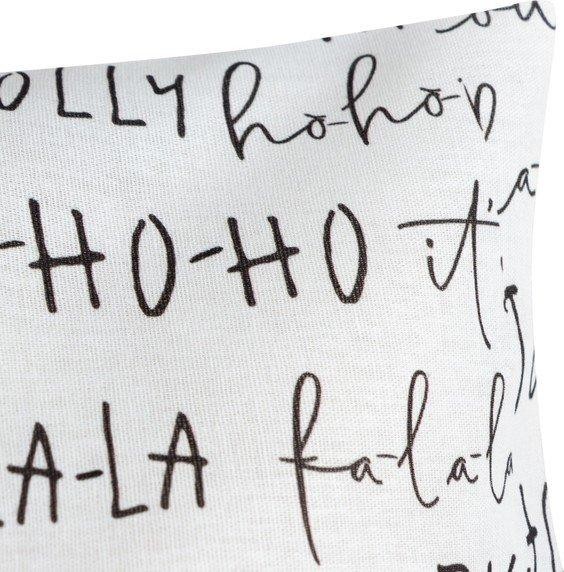 OLLY ho-ho-h
-HO-HO it'
LA-LA fa-la-la